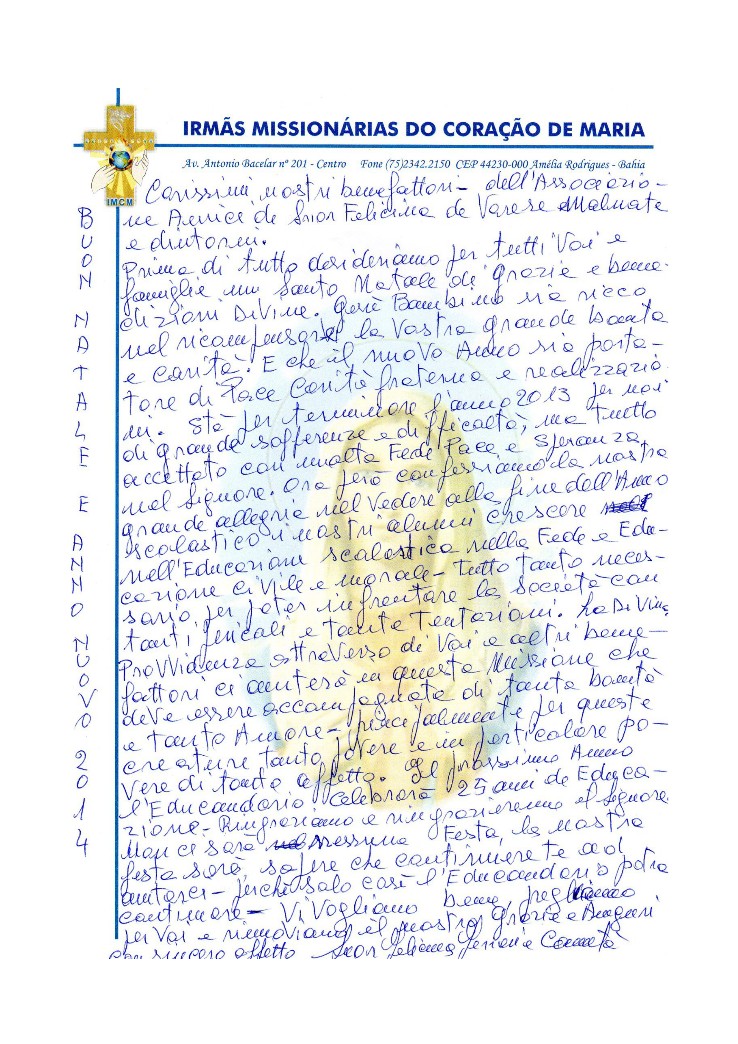 IRMÃS MISSIONÁRIAS DO CORAÇÃO DE MARIA
Av. Antonio Bacelar nº 201 - Centro Fone (75)2342.2150 CEP 44230-000 Amélia Rodrigues - Bahia
IMCM
BUON NATALE E ANNO NUOVO 2014
Carissimi nostri benefattori - dell'Associazio-
ne Amici de Suor Felicina de Varese Malnate
e dintorni.
Prima di tutto desideriamo per tutti Voi e
famiglie un Santo Natale di grazie e bene-
dizioni Divine. Gesù Bambino sia ricco
nel ricompensare la Vostra grande bontà
e carità. E che il nuovo Anno sia porta-
tore di Pace Carità fraterna e realizzazio
ni. Stà per terminare l'anno 2013 per noi
di grande sofferenze e difficoltà, ma tutto
accettato con molta Fede Pace e Speranza
nel Signore. Ora però confessiamo la nostra
grande allegria nel Vedere alla fine dell'Anno
scolastico i nostri alunni crescere
nell'Educazione scolastica nella Fede e Edu-
cazione civile e morale - tutto tanto neces-
sario per poter infrentare la Società con
tanti pericoli e tante tentazioni. La Divina
Provvidenza attraverso di Voi e altri bene-
fattori ci aiuterà in questa Missione che
deve essere accompagnata di tanta bontà
e tanto Amore - principalmente per queste
creature tanto povere e in particolare po-
vere di tanto affetto. Il prossimo Anno
l'Educandario celebrarà 25 anni de Educa-
zione - Ringraziamo e ringrazieremo il Signore.
Non ci sarà nessuna Festa, la nostra
festa sarà, sapere che continuerete ad
aiutarci - perchè solo così l'Educandario potrà
continuare - Vi Vogliamo bene, preghiamo
per Voi e rinnoviamo il nostro grazie e Auguri
con sincero affetto Suor Comunità